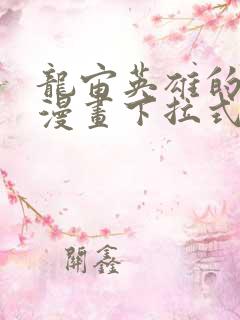 龍宙英雄的
漫畫下拉式
關鑫